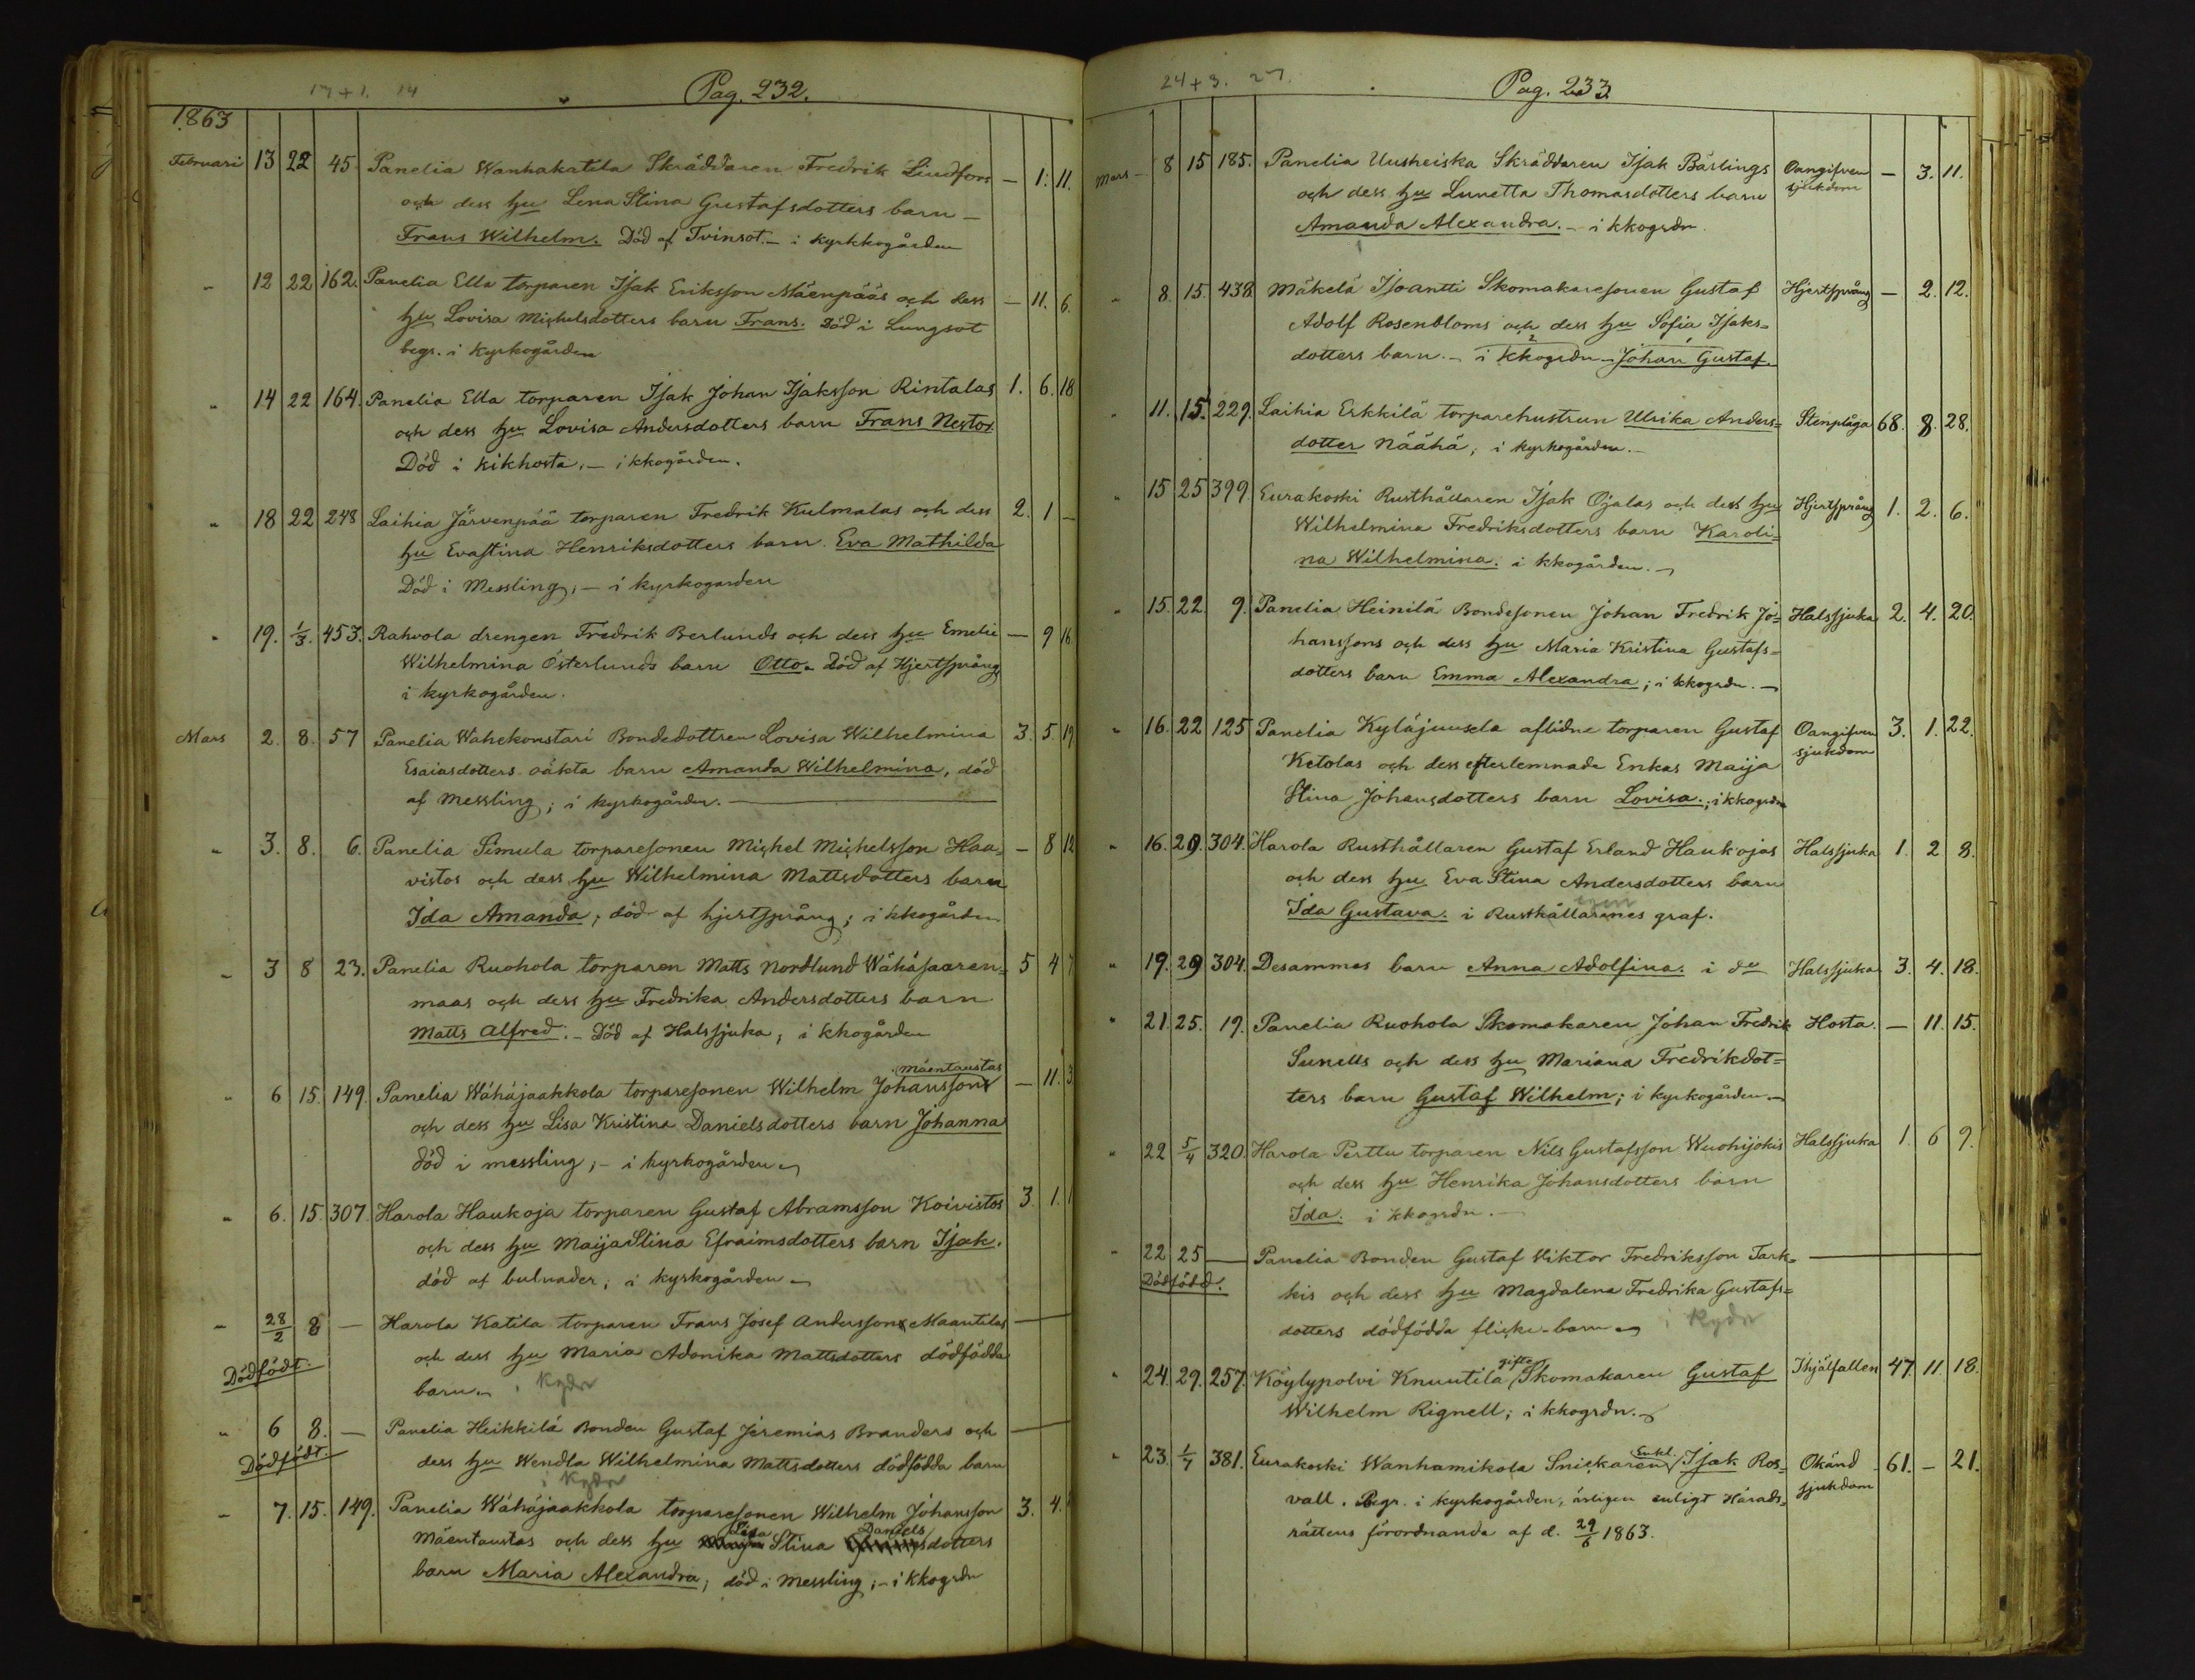 17+1. 14
Pag. 232.
1863
Februari 13 22 45. Panelia Wanhakatila Skräddaren Fredrik Lindfors — 1. 11.
och dess hu Lena Stina Gustafsdotters barn —
Frans Wilhelm. Död af Tvinsot. — i kyrkkogården
" 12 22 162. Panelia Ella torparen Isak Eriksson Mäenpääs och dess — 11. 6.
hu Lovisa Michelsdotters barn Frans. Död i Lungsot
begr. i kyrkogården
" 14 22 164. Panelia Ella torparen Isak Johan Isaksson Rintalas 1. 6. 18
och dess hu Lovisa Andersdotters barn Frans Nestor
Död i kikhosta, — i kkogården.
" 18 22 248 Laihia Järvenpää torparen Fredrik Kulmalas och dess 2. 1 —
hu Evastina Henriksdotters barn Eva Mathilda
Död i Messling, — i kyrkogården
" 19. 1/3. 453. Rahvola drengen Fredrik Berlunds och dess hu Emelie — 9 16
Wilhelmina Österlunds barn Otto. Död af Hjertsprång
i kyrkogården.
Mars 2. 8. 57 Panelia Wahekonstari Bondedottren Lovisa Wilhelmina 3. 5 19
Esaiasdotters oäkta barn Amanda Wilhelmina, död
af messling; i kyrkogården. —
" 3. 8. 6. Panelia Simula torparesonen Michel Michelsson Haa= — 8 12
vistos och dess hu Wilhelmina Mattsdotters barn
Ida Amanda; död af hjertsprång; i kkogården
" 3 8 23. Panelia Ruohola torparen Matts Nordlund Wähäsaaren= 5 4 7
maas och dess hu Fredrika Andersdotters barn
Matts Alfred. — Död af Halssjuka; i kkogården
Mäentaustas
" 6 15. 149. Panelia Wähäjaakkola torparesonen Wilhelm Johanssons — 11. 3
och dess hu Lisa Kristina Danielsdotters barn Johanna
död i messling; — i kyrkogården —
" 6. 15. 307. Harola Haukoja torparen Gustaf Abramsson Koivistos 3. 1. 1
och dess hu Maija Stina Efraimsdotters barn Isak.
död af bulnader; i kyrkogården —
" 28/2 8 — Harola Katila torparen Frans Josef Anderssons Maantilas —
Dödfödt. och dess hu Maria Adonika Mattsdotters dödfödda
barn. — i kgdn
" 6 8. — Panelia Heikkilä Bonden Gustaf Jeremias Branders och —
Dödfödt. dess hu Wendla Wilhelmina Mattsdotters dödfödda barn
i kgdn
" 7. 15. 149. Panelia Wähäjaakkola torparesonen Wilhelm Johansson 3. 4.
Lisa Daniels
Mäentaustas och dess hu Stina dotters
barn Maria Alexandra; död i messling; — i kkogrdn
24+3. 27.
Pag. 233
Mars — 8 15 185. Panelia Uusheiska Skräddaren Isak Bärlings Oangifven — 3. 11.
och dess hu Lunetta Thomasdotters barn sjukdom
Amanda Alexandra. — i kkogrdn.
" 8. 15. 438 Mäkelä Isoantti Skomakaresonen Gustaf Hjertsprång — 2. 12.
Adolf Rosenbloms och dess hu Sofia Isaks=
dotters barn. — i kkogrdn — Johan Gustaf.
" 11. 15. 229. Laihia Erkkilä torparehustrun Ulrika Anders= Stenplåga 68. 8. 28.
dotter Näähä; i kyrkogården. —
" 15 25 399. Eurakoski Rusthållaren Isak Ojalas och dess hu Hjertsprång 1. 2. 6.
Wilhelmina Fredriksdotters barn Karoli=
na Wilhelmina. i kkogården. —
" 15. 22. 9. Panelia Heinilä Bondesonen Johan Fredrik Jo= Halssjuka 2. 4. 20.
hanssons och dess hu Maria Kristina Gustafs=
dotters barn Emma Alexandra; i kkogrdn. —
" 16. 22 125 Panelia Kyläjuusela aflidne torparen Gustaf Oangifven 3. 1. 22.
Ketolas och dess efterlemnade Enkas Maija sjukdom
Stina Johansdotters barn Lovisa.; i kkogrdn
" 16. 29. 304. Harola Rusthållaren Gustaf Erland Haukojas Halssjuka 1. 2 8.
och dess hu Eva Stina Andersdotters barn
egen
Ida Gustava. i Rusthållarenes graf.
" 19. 29 304. Desammes barn Anna Adolfina. i do Halssjuka 3. 4. 18.
" 21. 25. 19. Panelia Ruohola Skomakaren Johan Fredrik Hosta. — 11. 15.
Sunells och dess hu Mariana Fredrikdot=
ters barn Gustaf Wilhelm; i kyrkogården. —
" 22 5/4 320. Harola Perttu torparen Nils Gustafsson Wuohijokis Halssjuka 1. 6 9.
och dess hu Henrika Johansdotters barn
Ida. i kkogrdn. —
" 22 25 — Panelia Bonden Gustaf Viktor Fredriksson Tark= —
Dödfödd. kis och dess hu Magdalena Fredrika Gustafs=
dotters dödfödda flicke-barn — i kgdn
gifte
" 24. 29. 257. Köylypolvi Knuutila Skomakaren Gustaf Ihjälfallen 47. 11. 18.
Wilhelm Rignell; i kkogrdn. —
Enkl.
" 23. 1/7 381. Eurakoski Wanhamikola Snickaren Isak Ros= Okänd 61. — 21.
vall. Begr. i kyrkogården, ärligen enligt Härads= sjukdom
rättens förordnande af d. 29/6 1863.